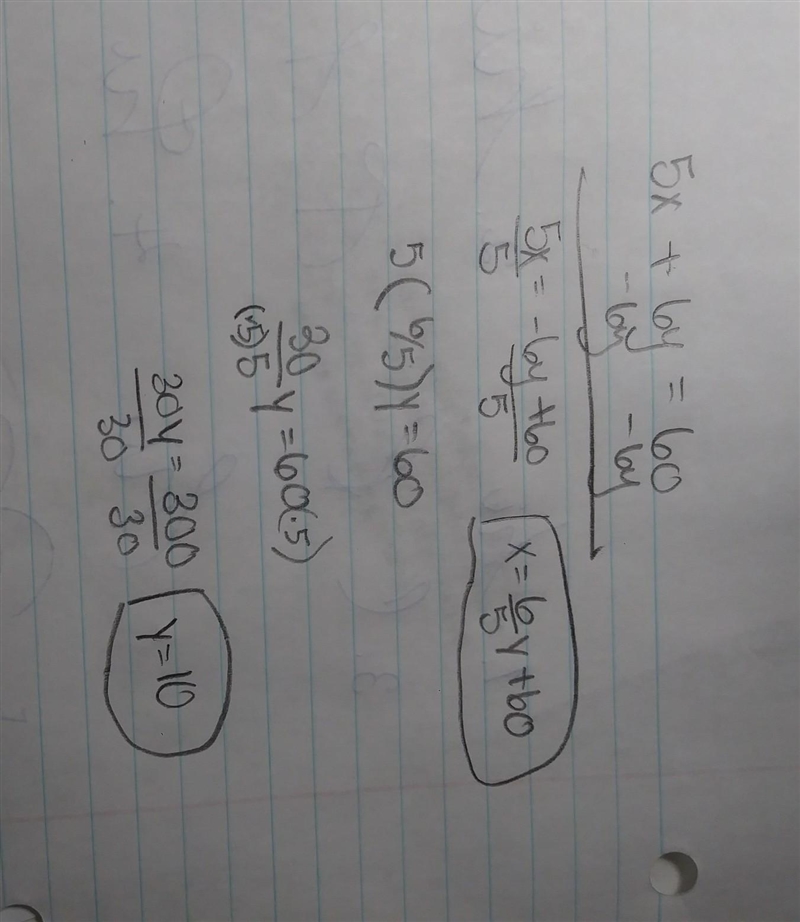 5x + 6y = 60
-6y -6y
5x/5 = -6y+60/5
x = 6/5 y + 60
5(6/5)y = 60
(·5) 30/5 y = 60(·5)
30y/30 = 300/30
y = 10